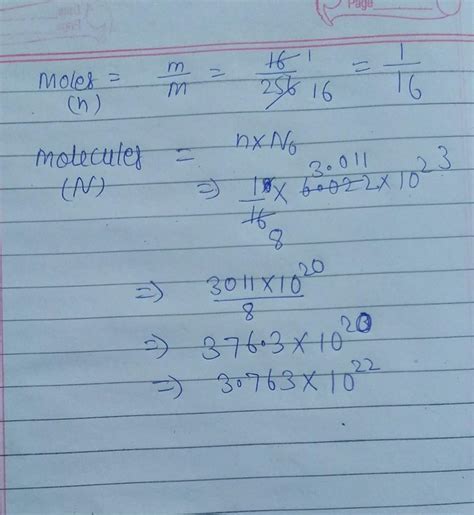 Page
moles = m/m = 16 1/256 16 = 1/16
(n)
molecules = n×N0
(N) ⇒ 1/16 8 × 6.022 3.011 × 10^23
⇒ 3011×10^20/8
⇒ 376.3×10^20
⇒ 3.763×10^22